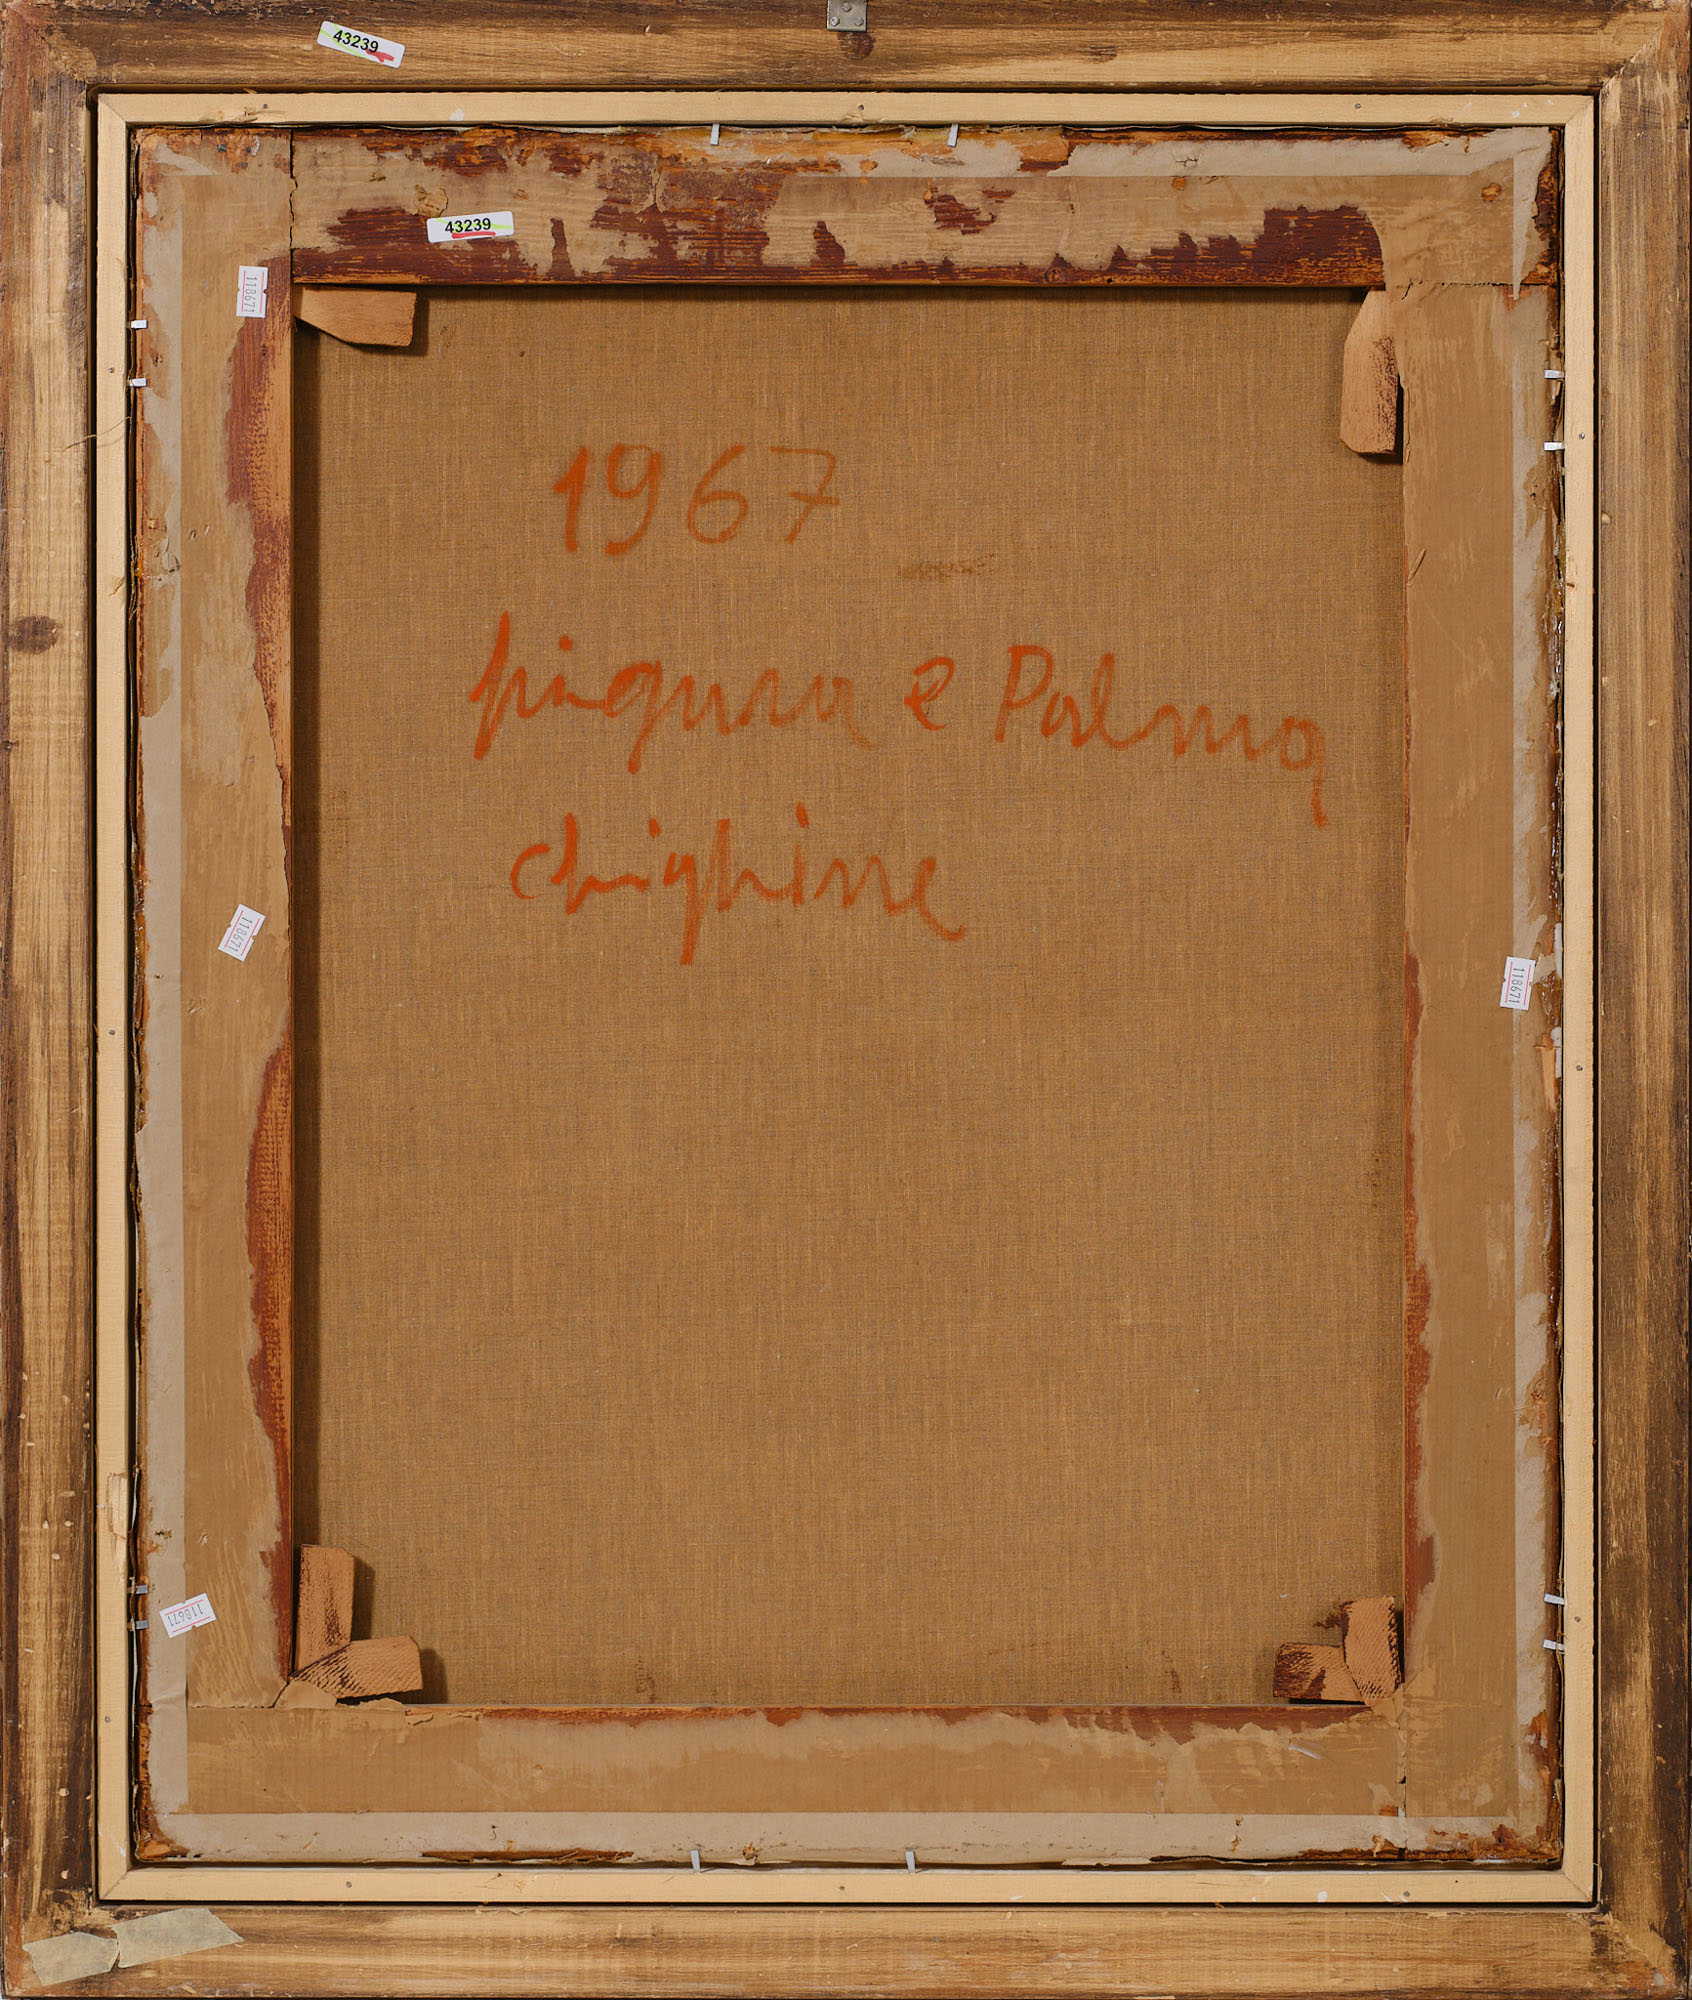 43239
43239
118671
1967
figura e Palma
chighine
118671
118671
118671